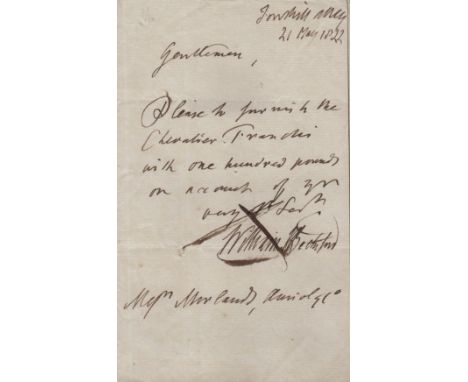 Fonthill Abbey
21 May 1822
Gentlemen,
Please to furnish the
Chevalier Franchi
with one hundred pounds
on account of yr
very ob Sert
William Beckford
Messrs Morlands, Auriol & Co